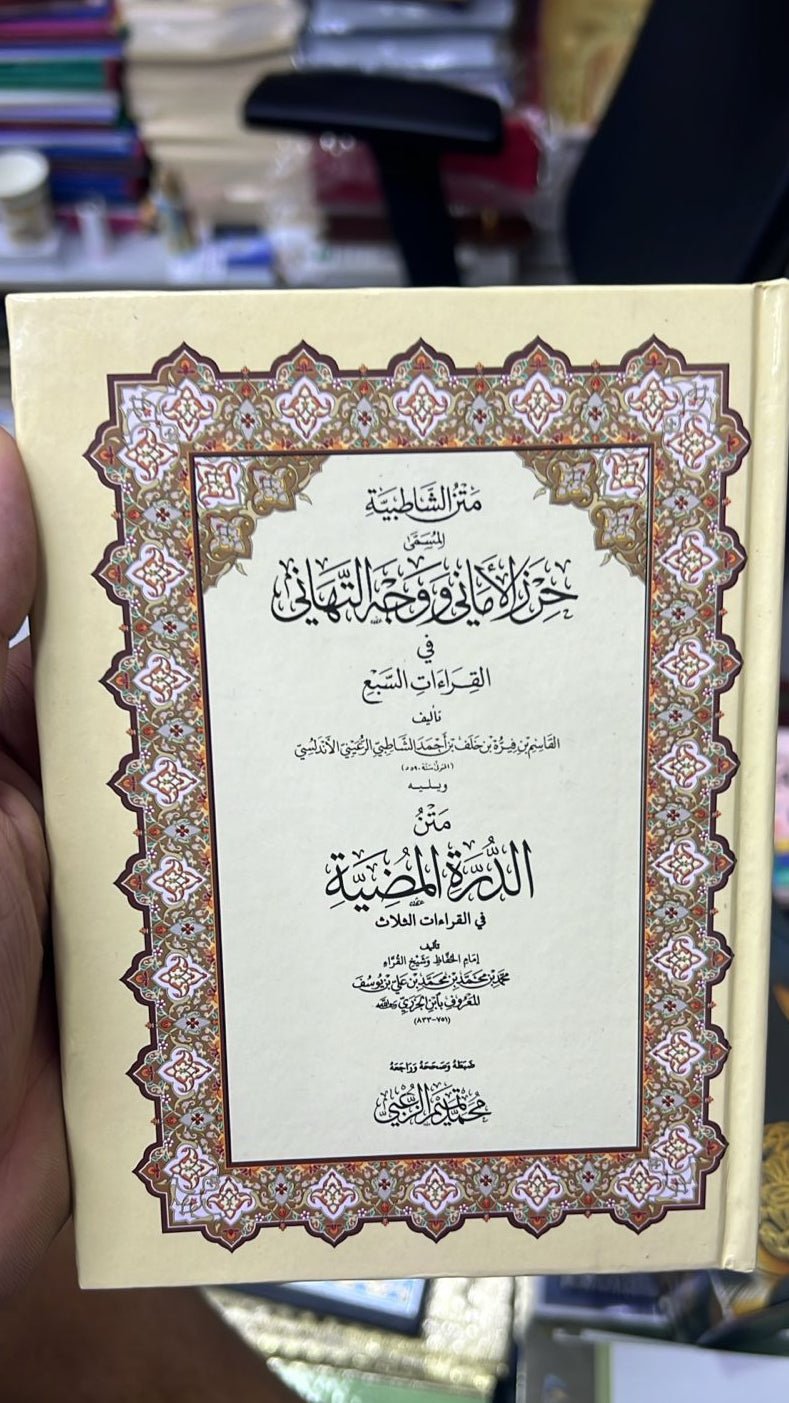 مَتْنُ الشَّاطِبِيَّةِ
المُسَمَّى
حِرْزَ الأَمَانِي وَوَجْهَ التَّهَانِي
فِي
القِرَاءَاتِ السَّبْعِ
تأليف
القَاسِم بْن فِيرُّه بْن خَلَف بْن أَحْمَد الشَّاطِبِيّ الرُّعَيْنِيّ الأَنْدَلُسِيّ
(المتوفى سَنَة ٥٩٠ هـ)
ويليه
مَتْنُ
الدُّرَّةِ المُضِيَّةِ
في القراءات الثلاث
تأليف
إِمَامِ الحُفَّاظِ وَشَيْخِ القُرَّاءِ
مُحَمَّد بْن مُحَمَّد بْن مُحَمَّد بْن عَلِيّ بْن يُوسُفَ
المَعْرُوفِ بِابْنِ الجَزَرِيّ رحمه الله
(٧٥١-٨٣٣)
ضَبَطَهُ وَصَحَّحَهُ وَرَاجَعَهُ
مُحَمَّد تَمِيم الزُّعْبِي